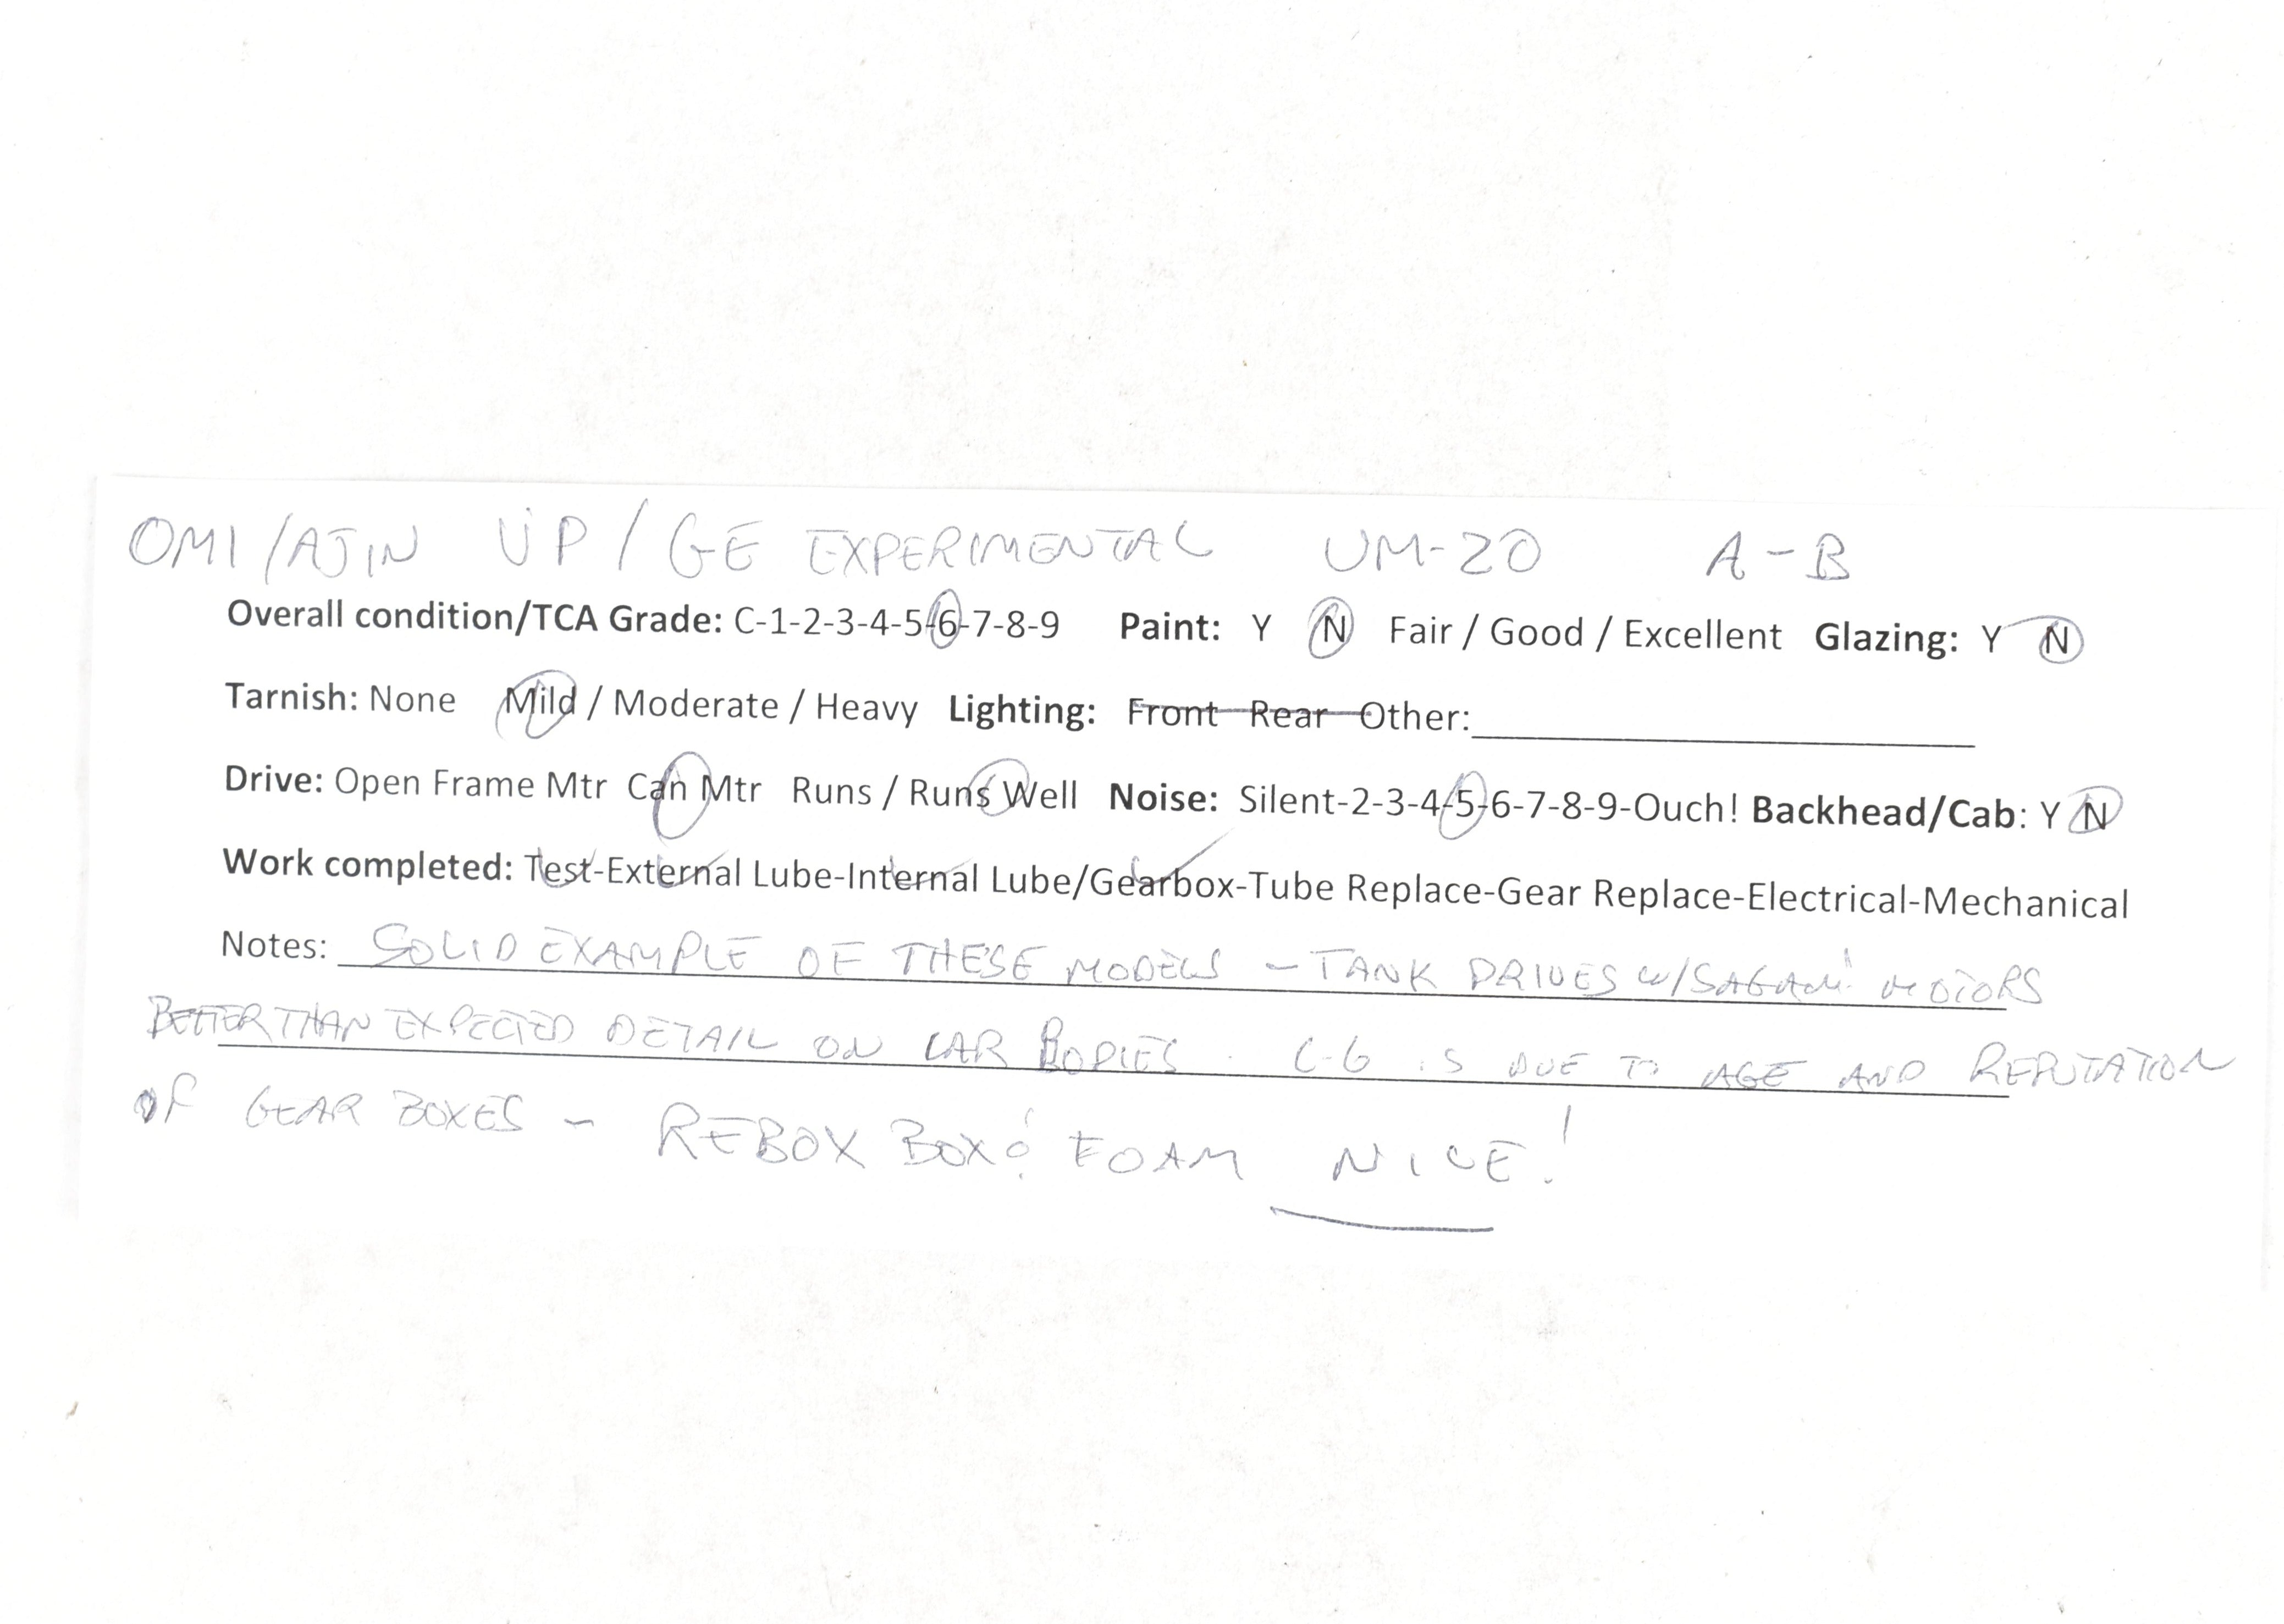 OMI/AJIN UP/GE EXPERIMENTAL UM-20 A-B
Overall condition/TCA Grade: C-1-2-3-4-5-6-7-8-9 Paint: Y N Fair / Good / Excellent Glazing: Y N
Tarnish: None Mild / Moderate / Heavy Lighting: Front Rear Other:
Drive: Open Frame Mtr Can Mtr Runs / Runs Well Noise: Silent-2-3-4-5-6-7-8-9-Ouch! Backhead/Cab: Y N
Work completed: Test-External Lube-Internal Lube/Gearbox-Tube Replace-Gear Replace-Electrical-Mechanical
Notes: SOLID EXAMPLE OF THESE MODELS - TANK DRIVES W/SAGAMI MOTORS
BETTER THAN EXPECTED DETAIL ON CAR BODIES. C-6 IS DUE TO AGE AND REPUTATION
OF GEAR BOXES - REBOX BOX & FOAM NICE!